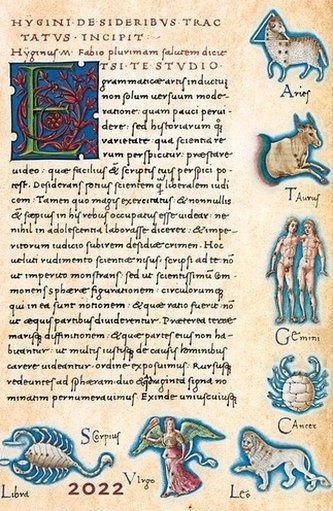 HYGINI·DE·SIDERIBUS·TRAC
TATUS·INCIPIT·
Hyginus·M·Fabio plurimam salutem dicit
ETSI·TE·STUDIO·
grammaticæ artis inductũ
non solum versuum mode-
ratione: quam pauci pervi-
dere: sed historiarum q̃
varietate: qua scientia re-
rum perspicitur: præstare
uideo: quæ facilius & scriptis tuis perspici po-
test. Desiderans potius scientem q̃ liberalem iudi
cem: Tamen quo magis exercitatus: & nonnullis
& sæpius in hys rebus occupatus esse uidear: ne
nihil in adolescentia laborasse dicerer: & impe-
ritorum iudicio subirem desidiæ crimen: Hoc
ueluti rudimento scientiæ nisus: scripsi ad te: nõ
ut imperito monstrans: sed ut scientissimũ com-
monens sphæræ figurationem: circulorumq̃
qui in ea sunt notionem: & quæ ratio fuerit: nõ
ut æquis partibus diuiderentur: Præterea terræ
marisq̃ diffinitionem: & quæ partes eius non ha-
buentur: ut multis iustisq̃ de causis hominibus
carere uideantur: ordine exposuimus: Rursusq̃
redeuntes ad sphæram: duo & signa no
minatim pernumerauimus: Exinde uniuscuiusq̃
Aries
Taurus
Gemini
Cancer
Scorpius
Virgo
Leo
Libra
2022